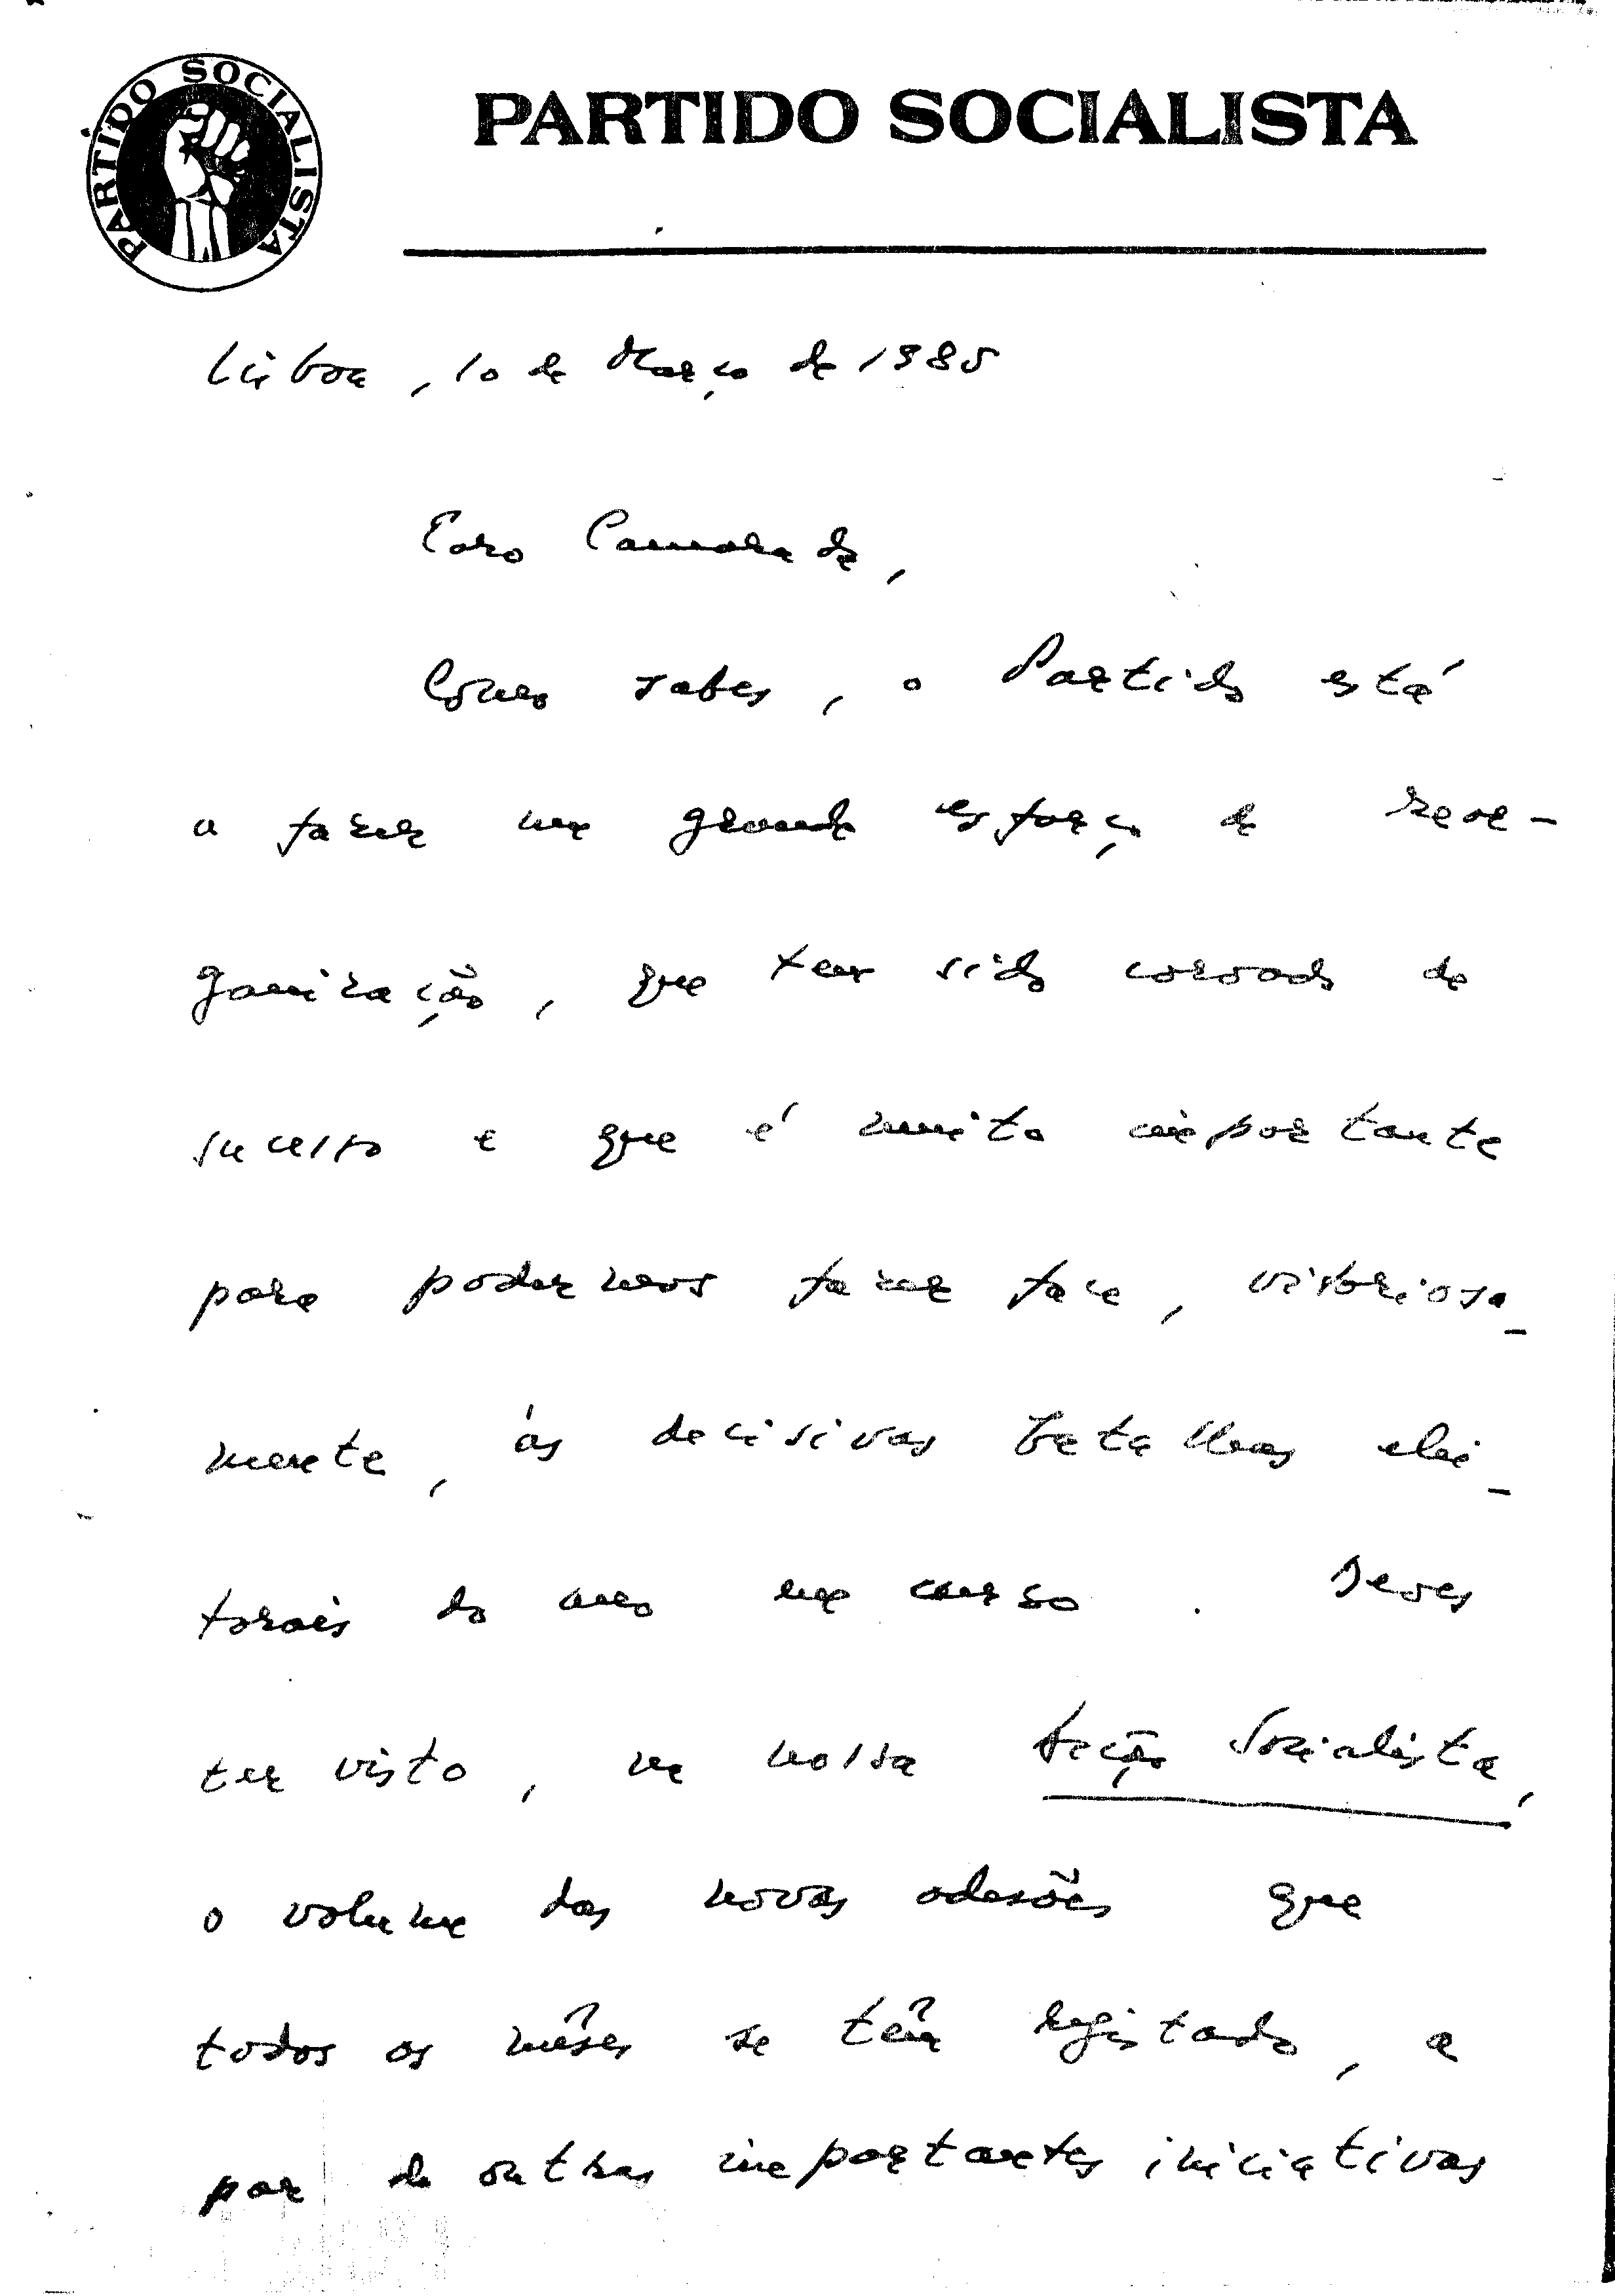 PARTIDO SOCIALISTA
PARTIDO SOCIALISTA
Lisboa, 10 de Março de 1985
Caro Camarada,
Como sabes, o Partido está
a fazer um grande esforço de reor-
ganização, que tem sido coroado de
sucesso e que é muito importante
para podermos fazer face, vitoriosa-
mente, às decisivas batalhas elei-
torais do ano em curso. Deves
ter visto, na nossa Acção Socialista,
o volume das novas adesões que
todos os mêses se têm registado, a
par de outras importantes iniciativas